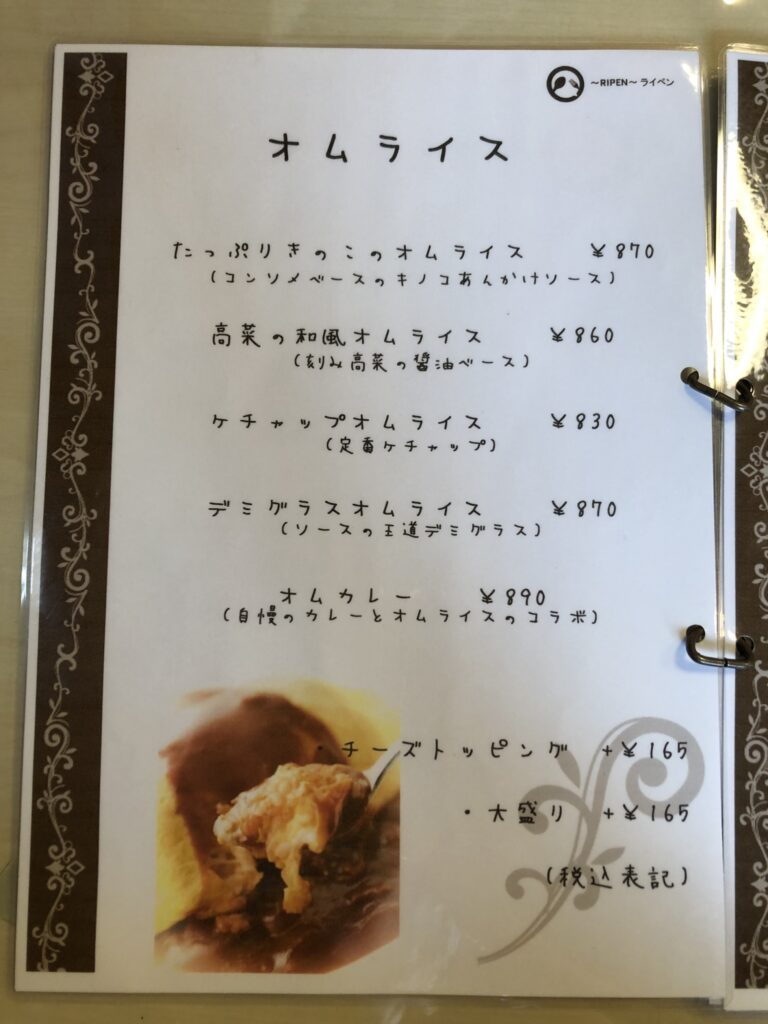 〜RIPEN〜 ライペン
オムライス
たっぷりきのこのオムライス ¥870
(コンソメベースのキノコあんかけソース)
高菜の和風オムライス ¥860
(刻み高菜の醤油ベース)
ケチャップオムライス ¥830
(定番ケチャップ)
デミグラスオムライス ¥870
(ソースの王道デミグラス)
オムカレー ¥890
(自慢のカレーとオムライスのコラボ)
・チーズトッピング +¥165
・大盛り +¥165
(税込表記)